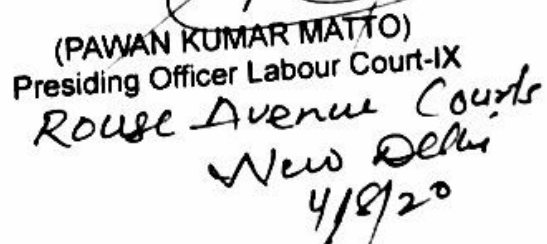 (PAWAN KUMAR MATTO)
Presiding Officer Labour Court-IX
Rouse Avenue Courts
New Delhi
4/8/20